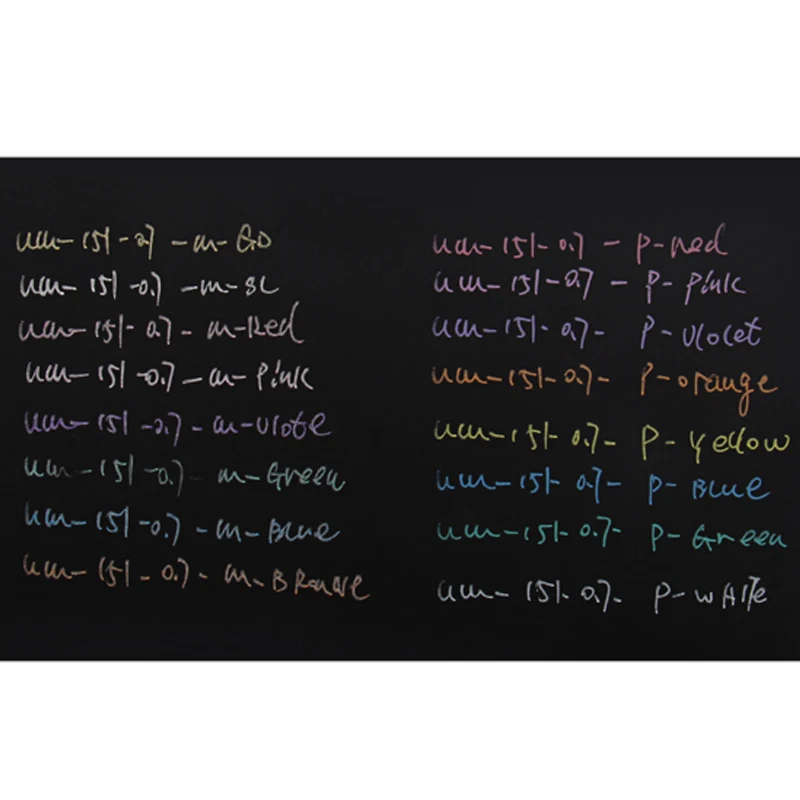 um-151-0.7-m-GD
um-151-0.7-m-SL
um-151-0.7-m-Red
um-151-0.7-m-Pink
um-151-0.7-m-Viote
um-151-0.7-m-Green
um-151-0.7-m-Blue
um-151-0.7-m-BRonze
um-151-0.7-P-red
um-151-0.7-P-Pink
um-151-0.7-P-Violet
um-151-0.7-P-orange
um-151-0.7-P-Yellow
um-151-0.7-P-Blue
um-151-0.7-P-Green
um-151-0.7-P-wHite